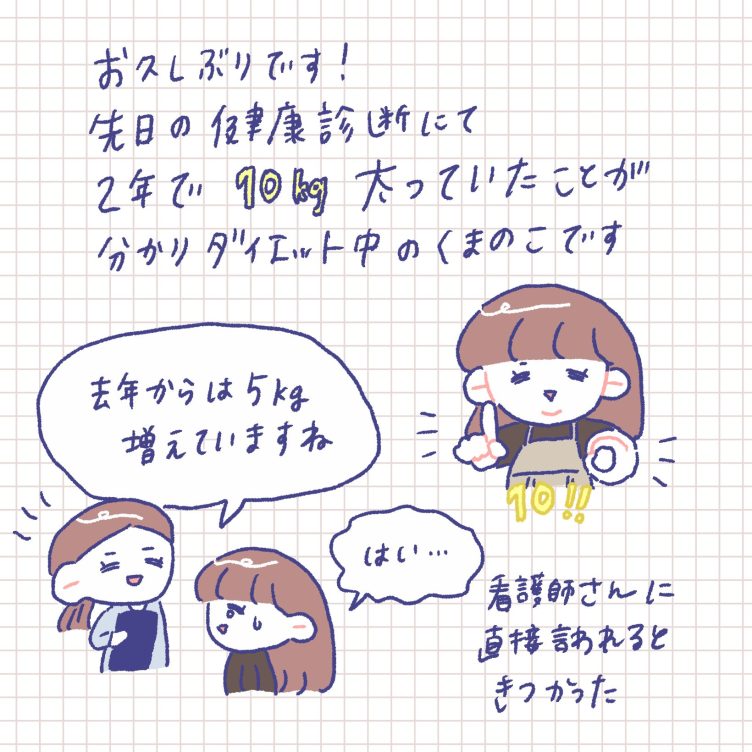 お久しぶりです!
先日の健康診断にて
2年で 10kg 太っていたことが
分かりダイエット中のくまのこです
去年からは5kg
増えていますね
10!!
はい…
看護師さんに
直接言われると
きつかった